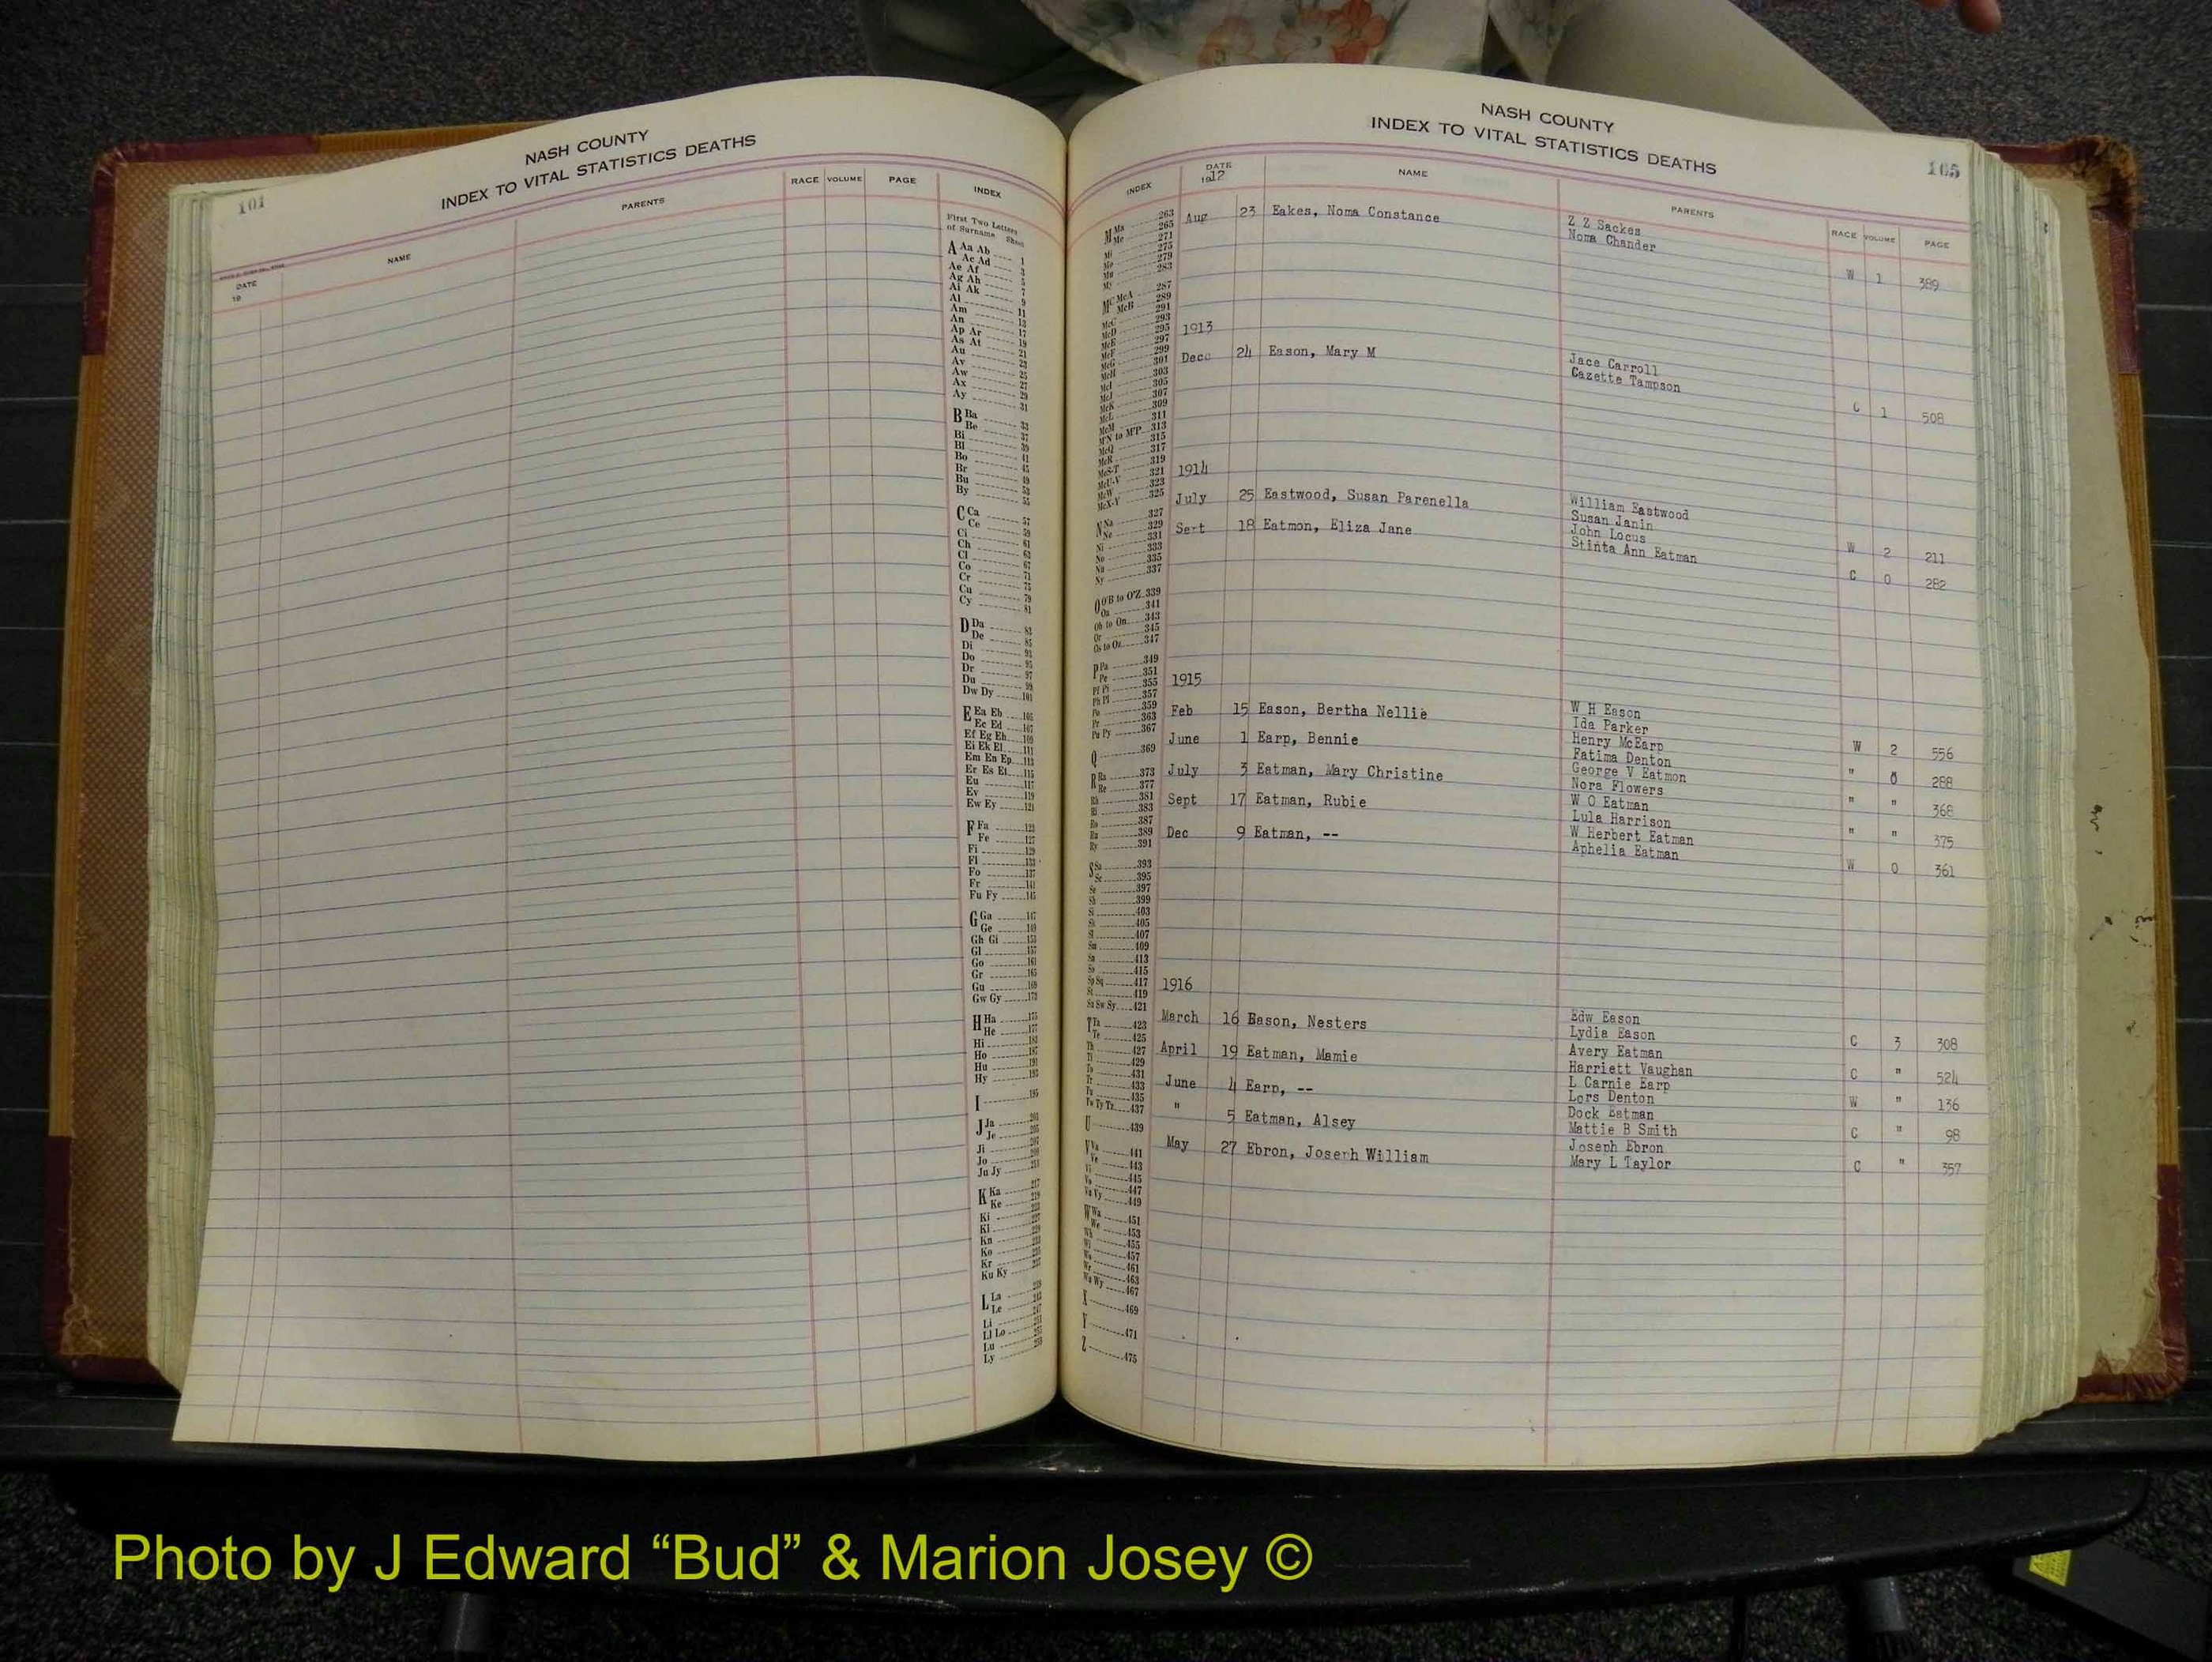 NASH COUNTY
INDEX TO VITAL STATISTICS DEATHS
101
DATE
19
NAME
PARENTS
RACE VOLUME PAGE INDEX
First Two Letters
of Surname Sheet
A Aa Ab 1
Ac Ad 3
Ae Af 5
Ag Ah 7
Ai Ak 9
Al 11
Am 13
An 17
Ap Ar 19
As At 21
Au 23
Av 25
Aw 27
Ax 29
Ay 31
B Ba 33
Be 37
Bi 39
Bl 41
Bo 45
Br 49
Bu 53
By 55
C Ca 57
Ce 59
Ci 61
Ch 63
Cl 67
Co 71
Cr 75
Cu 79
Cy 81
D Da 83
De 85
Di 93
Do 95
Dr 97
Du 99
Dw Dy 101
E Ea Eb 105
Ec Ed 107
Ef Eg Eh 109
Ei Ek El 111
Em En Ep 113
Er Es Et 115
Eu 117
Ev 119
Ew Ey 121
F Fa 123
Fe 127
Fi 129
Fl 133
Fo 137
Fr 141
Fu Fy 145
G Ga 147
Ge 149
Gh Gi 153
Gl 157
Go 161
Gr 165
Gu 169
Gw Gy 173
H Ha 175
He 177
Hi 183
Ho 187
Hu 191
Hy 193
I 195
J Ja 201
Je 205
Ji 207
Jo 209
Ju Jy 211
K Ka 217
Ke 219
Ki
Kl
Kn
Ko
Kr
Ku Ky
L La
Le
Li
Ll Lo
Lu
Ly
NASH COUNTY
INDEX TO VITAL STATISTICS DEATHS
105
INDEX DATE NAME PARENTS RACE VOLUME PAGE
1912
Aug 23 Eakes, Noma Constance Z Z Sackes
Noma Chander W 1 389
1913
Dec 24 Eason, Mary M Jace Carroll
Cazette Tampson C 1 508
1914
July 25 Eastwood, Susan Parenella William Eastwood
Susan Janin W 2 211
Sept 18 Eatmon, Eliza Jane John Locus
Stinta Ann Eatman C 0 282
1915
Feb 15 Eason, Bertha Nellie W H Eason
Ida Parker W 2 556
June 1 Earp, Bennie Henry McEarp
Fatima Denton " 0 288
July 3 Eatman, Mary Christine George V Eatmon
Nora Flowers " " 368
Sept 17 Eatman, Rubie W O Eatman
Lula Harrison " " 375
Dec 9 Eatman, -- W Herbert Eatman
Aphelia Eatman W 0 361
1916
March 16 Eason, Nesters Edw Eason
Lydia Eason C 3 308
April 19 Eatman, Mamie Avery Eatman
Harriett Vaughan C " 524
June 4 Earp, -- L Carnie Earp
Lors Denton W " 136
" 5 Eatman, Alsey Dock Eatman
Mattie B Smith C " 98
May 27 Ebron, Joseph William Joseph Ebron
Mary L Taylor C " 357
M Ma 263
Me 265
Mi 271
Mo 279
My
Mc McA 287
McB 289
McC 291
McD 293
McE 295
McF 297
McG 299
McH 301
McI 303
McJ 305
McK 307
McL 309
McM 311
M'N to M'P 313
McQ 315
McR 317
McS-T 319
McU-V 321
McW 323
McX-Y 325
N Na 327
Ne 329
Ni 331
No 333
Nu 335
Ny 337
O O'B to O'Z 339
Oa 341
Oh to On 343
Or 345
Os to Oz 347
P Pa 349
Pe 351
Pf Pi 355
Ph Pl 357
Po 359
Pr 363
Pu Py 367
Q 369
R Ra 373
Re 377
Rh 381
Ri 383
Ro 387
Ru 389
Ry 391
S Sa 393
Sc 395
Se 397
Sh 399
Si 403
Sk 405
Sl 407
Sm 409
Sn 413
So 415
Sp Sq 417
St 419
Su Sw Sy 421
T Ta 423
Te 425
Th 427
Ti 429
To 431
Tr 433
Tu 435
Tw Ty Tz 437
U 439
V Va 441
Ve 443
Vi 445
Vo 447
Vu Vy 449
W Wa 451
We 453
Wh 455
Wi 457
Wo 461
Wr 463
Wu Wy 467
X 469
Y 471
Z 475
Photo by J Edward “Bud” & Marion Josey ©